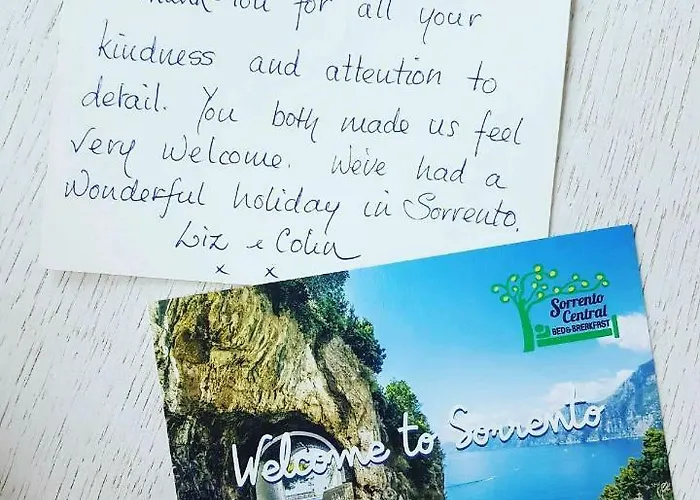 Thank-You for all your
kindness and attention to
detail. You both made us feel
very welcome. We've had a
wonderful holiday in Sorrento.
Liz & Colin
x x
Sorrento
Central
BED & BREAKFAST
Welcome to Sorrento